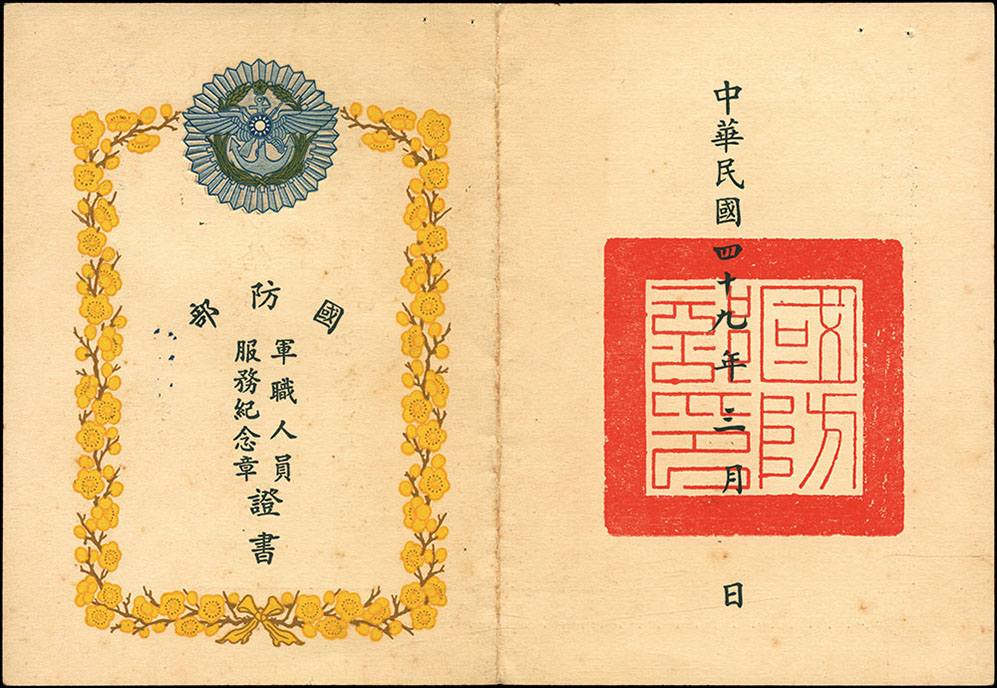 國防部
軍職人員
服務紀念章
證書
中華民國四十九年三月 日
國防部印